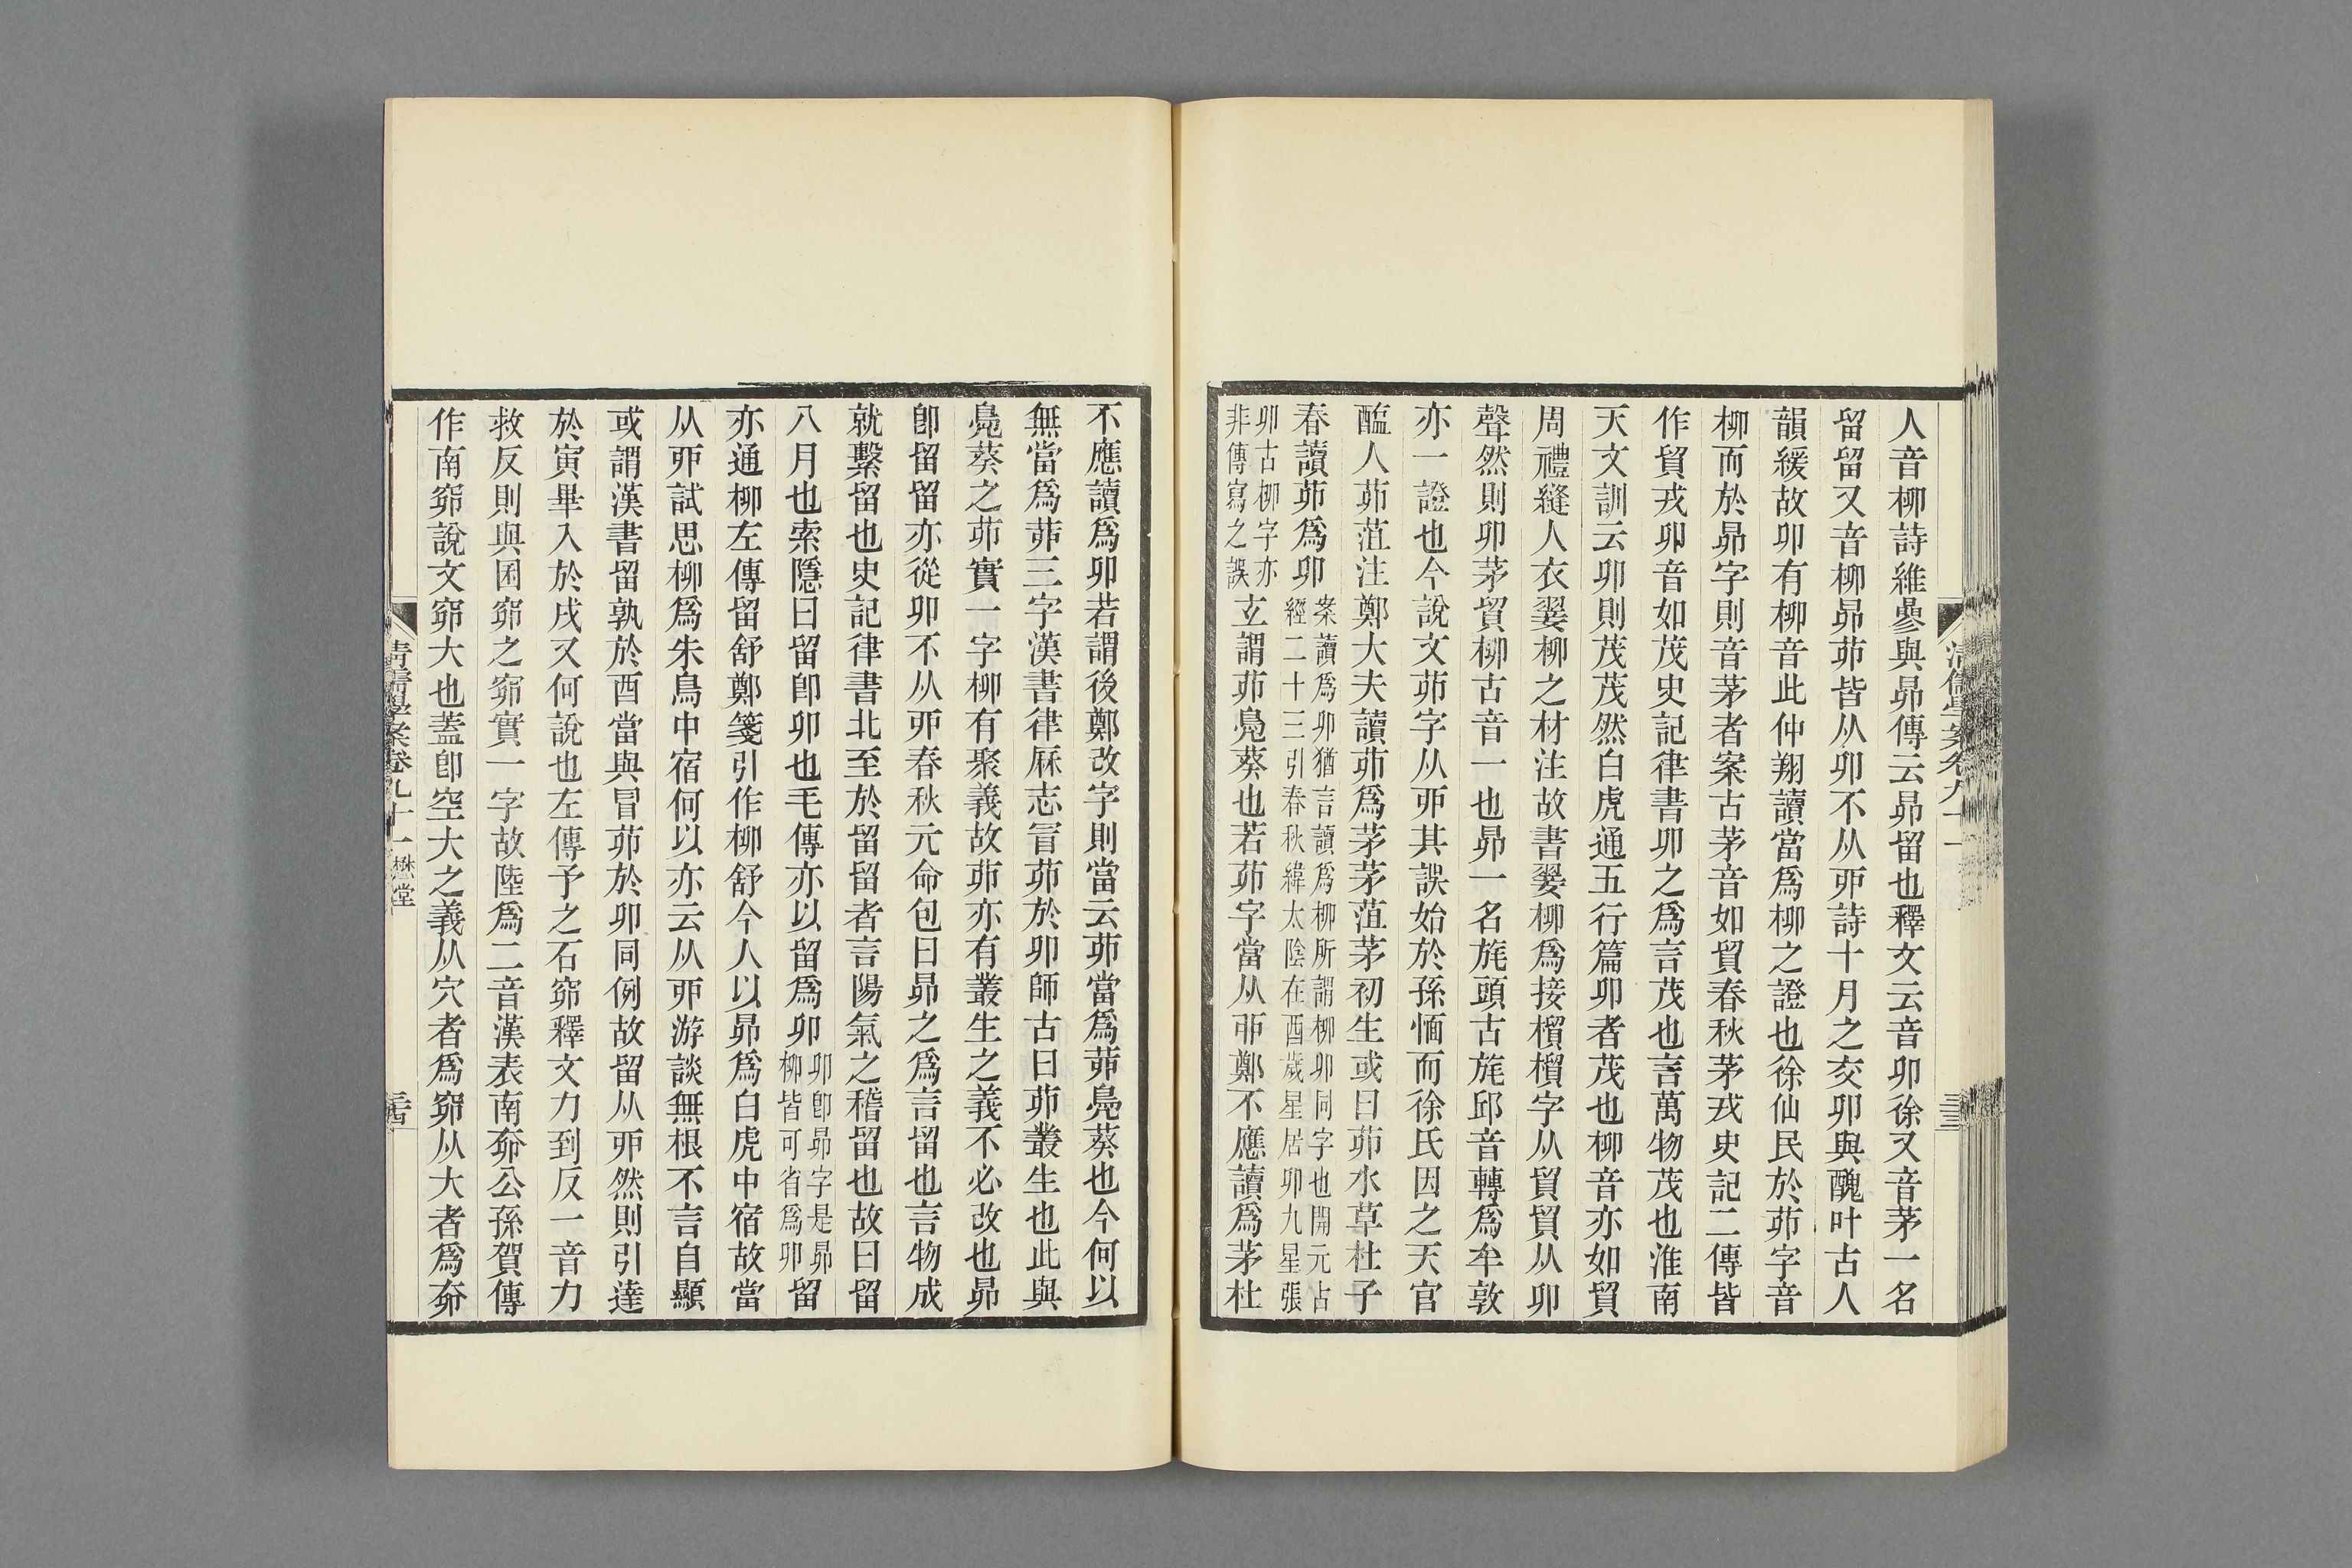 人音柳詩維曑與昴傳云昴留也釋文云音卯徐又音茅一名
留留又音柳昴茆皆从卯不从丣詩十月之交卯與醜叶古人
韻緩故卯有柳音此仲翔讀當爲柳之證也徐仙民於茆字音
柳而於昴字則音茅者案古茅音如貿春秋茅戎史記二傳皆
作貿戎卯音如茂史記律書卯之爲言茂也言萬物茂也淮南
天文訓云卯則茂茂然白虎通五行篇卯者茂也柳音亦如貿
周禮縫人衣翣柳之材注故書翣柳爲接櫴櫴字从貿貿从卯
聲然則卯茅貿柳古音一也昴一名旄頭古旄邱音轉爲牟敦
亦一證也今說文茆字从丣其誤始於孫愐而徐氏因之天官
醢人茆菹注鄭大夫讀茆爲茅茅菹茅初生或曰茆水草杜子
春讀茆爲卯案讀爲卯猶言讀爲柳所謂柳卯同字也開元占
經二十三引春秋緯太陰在酉歲星居卯九星張
卯古柳字亦
非傳寫之誤玄謂茆鳧葵也若茆字當从丣鄭不應讀爲茅杜
不應讀爲卯若謂後鄭改字則當云茆當爲茆鳧葵也今何以
無當爲茆三字漢書律厤志冒茆於卯師古曰茆叢生也此與
鳧葵之茆實一字柳有聚義故茆亦有叢生之義不必改也昴
卽留留亦從卯不从丣春秋元命包曰昴之爲言留也言物成
就繫留也史記律書北至於留留者言陽氣之稽留也故曰留
八月也索隱曰留卽卯也毛傳亦以留爲卯卯卽昴字是昴
柳皆可省爲卯留
亦通柳左傳留舒鄭箋引作柳舒今人以昴爲白虎中宿故當
从丣試思柳爲朱鳥中宿何以亦云从丣游談無根不言自顯
或謂漢書留孰於酉當與冒茆於卯同例故留从丣然則引達
於寅畢入於戌又何說也左傳予之石窌釋文力到反一音力
救反則與囷窌之窌實一字故陸爲二音漢表南奅公孫賀傳
作南窌說文窌大也蓋卽空大之義从穴者爲窌从大者爲奅
清儒學案卷九十一 懋堂
三十四